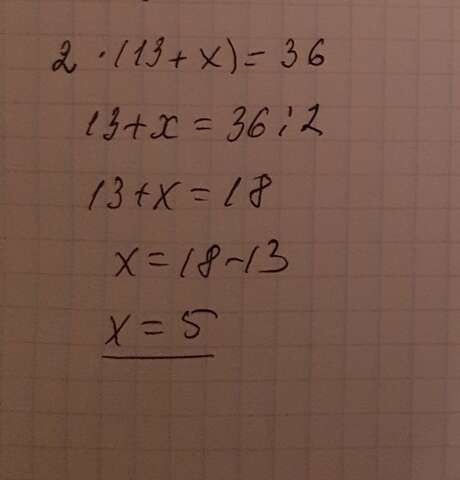 2 · (13 + x) = 36
13 + x = 36 : 2
13 + x = 18
x = 18 - 13
x = 5